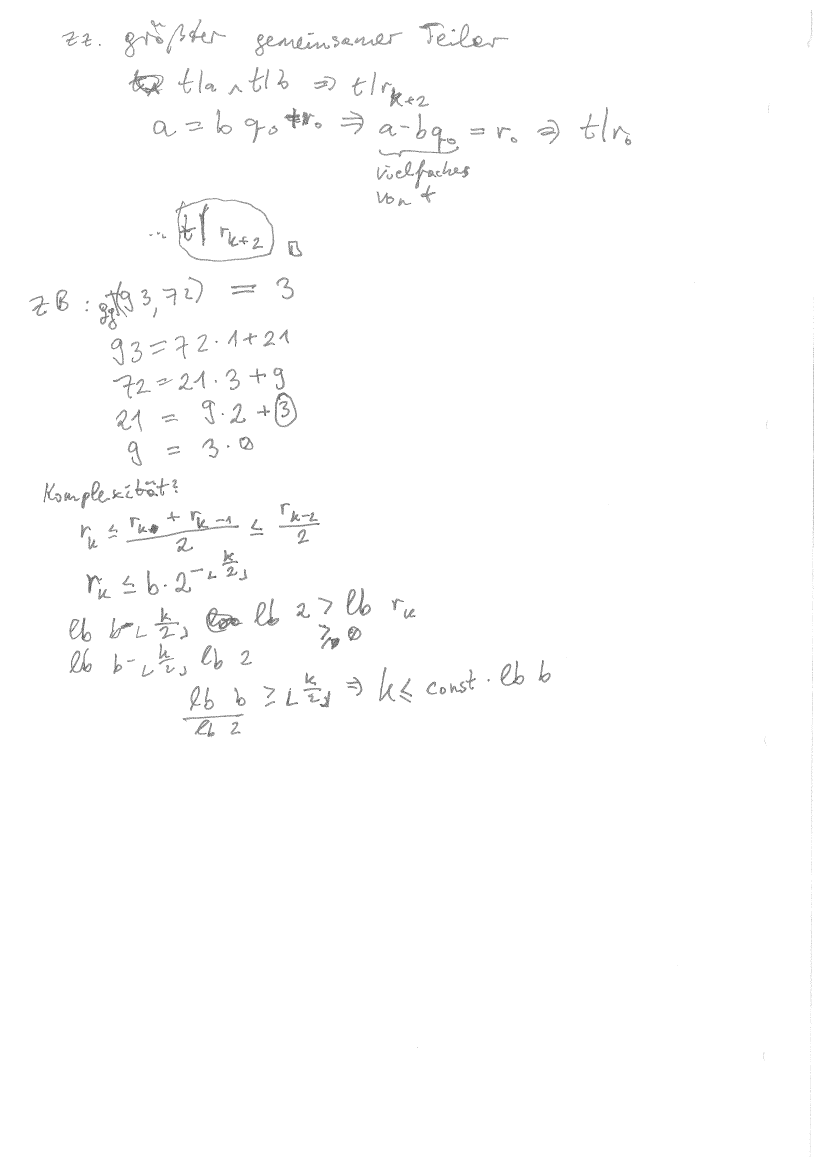 zz. größter gemeinsamer Teiler
t|a ∧ t|b ⇒ t|r_{k+2}
a = b q₀ + r₀ ⇒ a - bq₀ = r₀ ⇒ t|r₀
Vielfaches
von t
... t | r_{k+2}
ZB: ggT(93,72) = 3
93 = 72 · 1 + 21
72 = 21 · 3 + 9
21 = 9 · 2 + 3
9 = 3 · 0
Komplexität?
r_k ≤ (r_k + r_{k-1})/2 ≤ r_{k-2}/2
r_k ≤ b · 2^{-⌊k/2⌋}
lb b - ⌊k/2⌋ lb 2 ≥ lb r_k
≥ 0
lb b - ⌊k/2⌋ lb 2
lb b / lb 2 ≥ ⌊k/2⌋ ⇒ k ≤ const · lb b